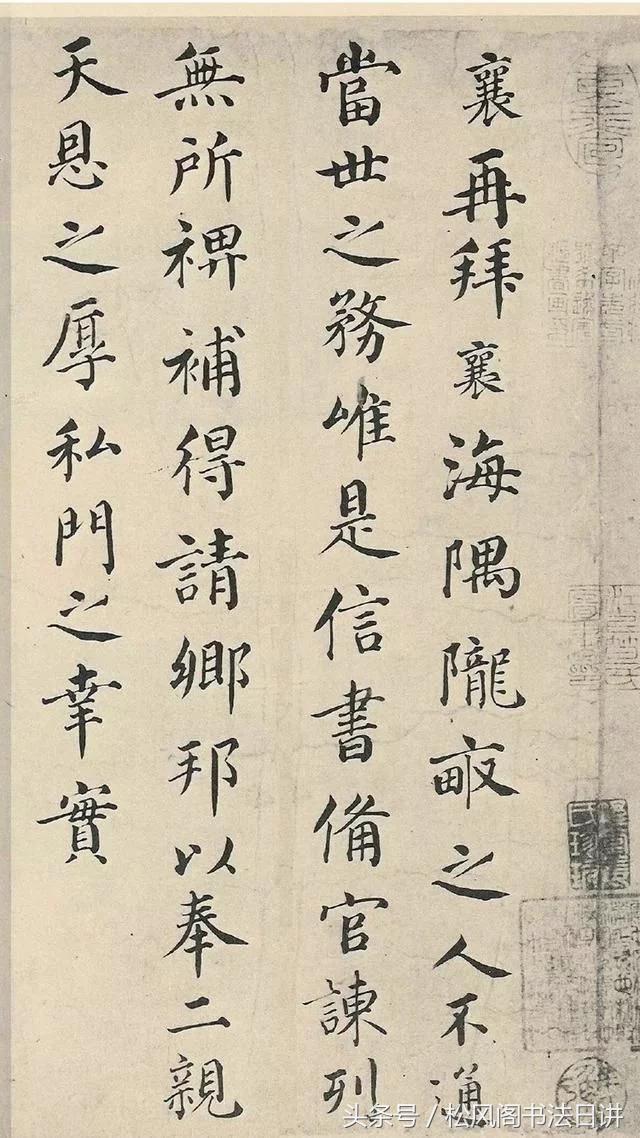 襄再拜襄海隅隴畝之人不通
當世之務唯是信書備官諫列
無所裨補得請鄉邦以奉二親
天恩之厚私門之幸實
头条号/松风阁书法日讲